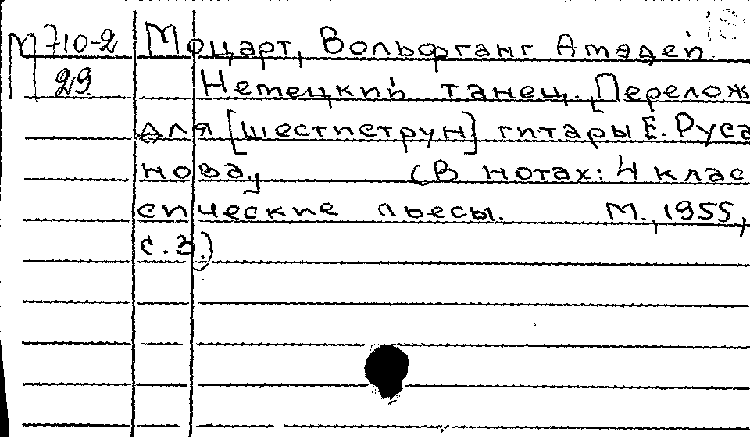 М 710-2 Моцарт, Вольфганг Амадей.
29 Немецкий танец. Перелож
для [шестиструн] гитары Е. Руса
нова, (В нотах: 4 клас
сические пьесы. М., 1955,
с. 3.)